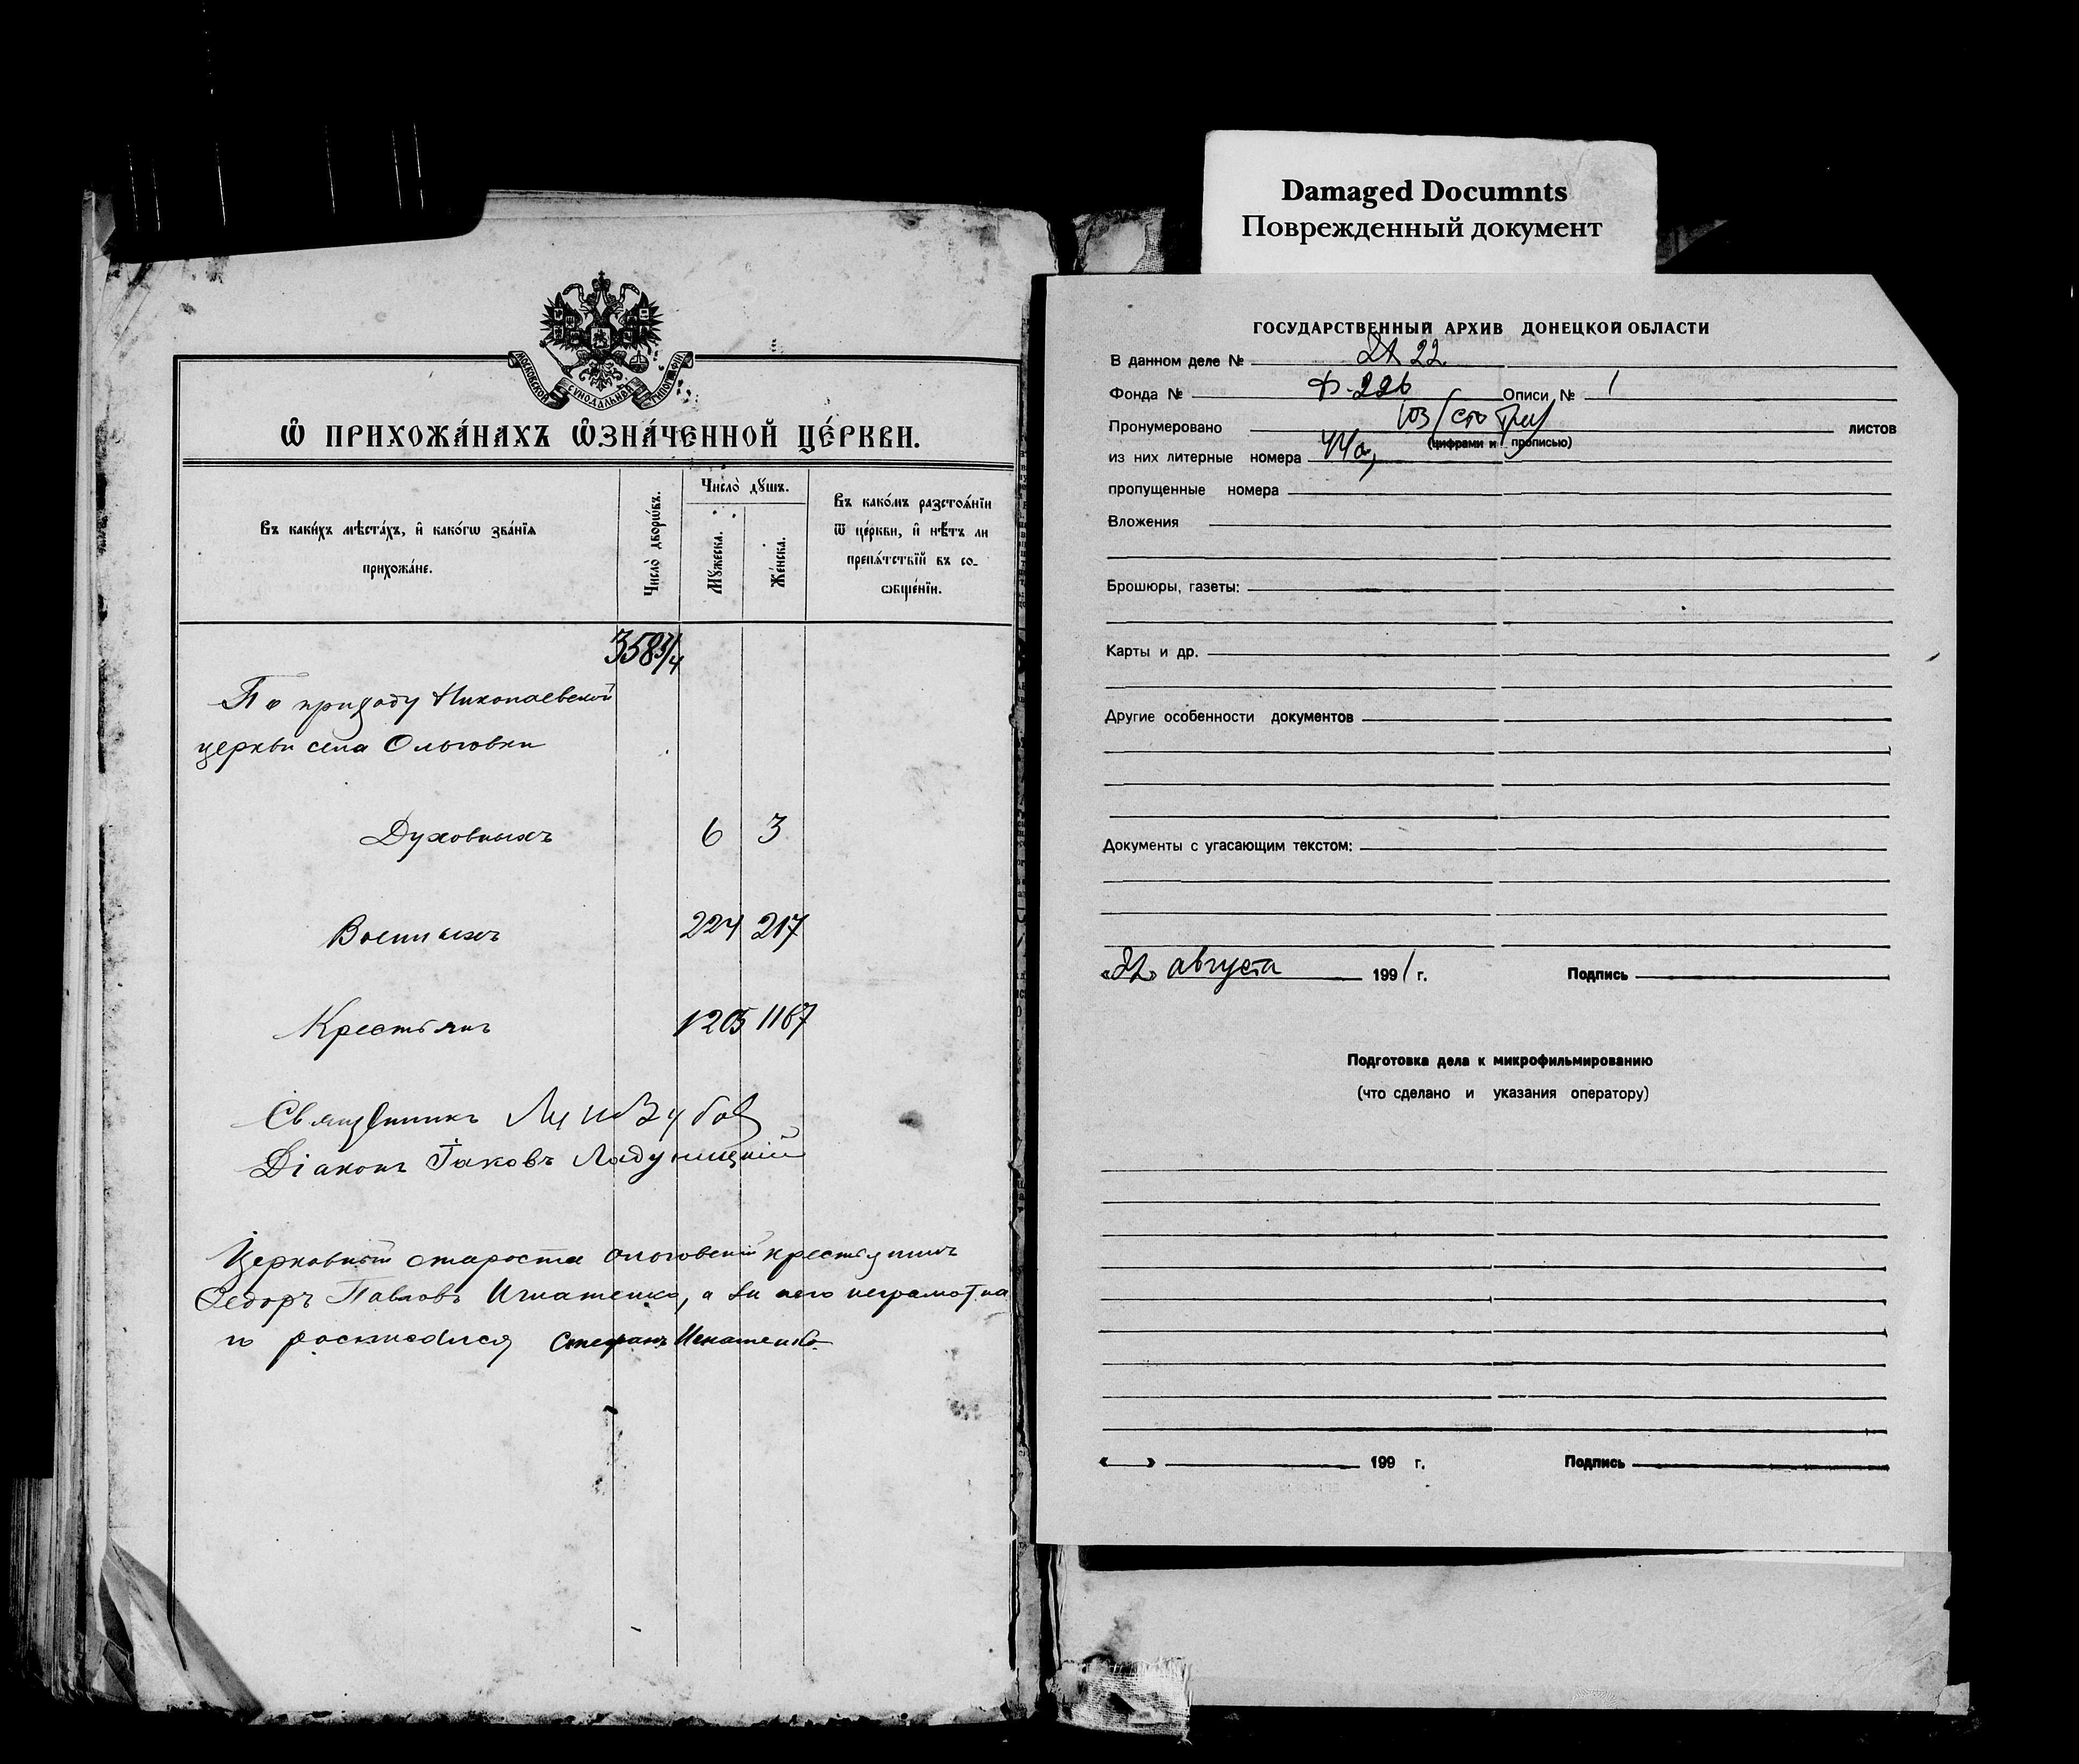 Damaged Documnts
Поврежденный документ
МОСКОВСКОЙ СѴНОДАЛЬНОЙ ТИПОГРАФІИ
Ѡ ПРИХОЖА́НАХЪ Ѡ҆ЗНА́ЧЕННОЙ ЦЕ́РКВИ.
Въ каки́хъ мѣста́хъ, и҆ како́гѡ зва́нїѧ
прихожа́не.
Число̀ дворѡ́въ.
Число̀ дꙋ́шъ.
Мꙋ́жеска.
Же́нска.
Въ како́мъ разстоѧ́нїи
ѿ це́ркви, и҆ нѣ́тъ ли
препѧ́тствїй въ со-
ѡбще́нїи.
358 3/4
По приходу Николаевской
церкви села Ольговки
Духовныхъ 6 3
Военныхъ 224 217
Крестьянъ 1205 1167
Священникъ
Діаконъ Іаковъ
Церковный староста ольговскій крестьянинъ
Федоръ Павловъ Игнатенко, а за него неграмотна
го росписался Стефанъ Игнатенко
ГОСУДАРСТВЕННЫЙ АРХИВ ДОНЕЦКОЙ ОБЛАСТИ
В данном деле № 22
Фонда № Ф-226 Описи № 1
Пронумеровано 103 /сто три/ листов
(цифрами и прописью)
из них литерные номера 44а,
пропущенные номера
Вложения
Брошюры, газеты:
Карты и др.
Другие особенности документов
Документы с угасающим текстом:
«22» августа 1991 г. Подпись
Подготовка дела к микрофильмированию
(что сделано и указания оператору)
« » 199 г. Подпись